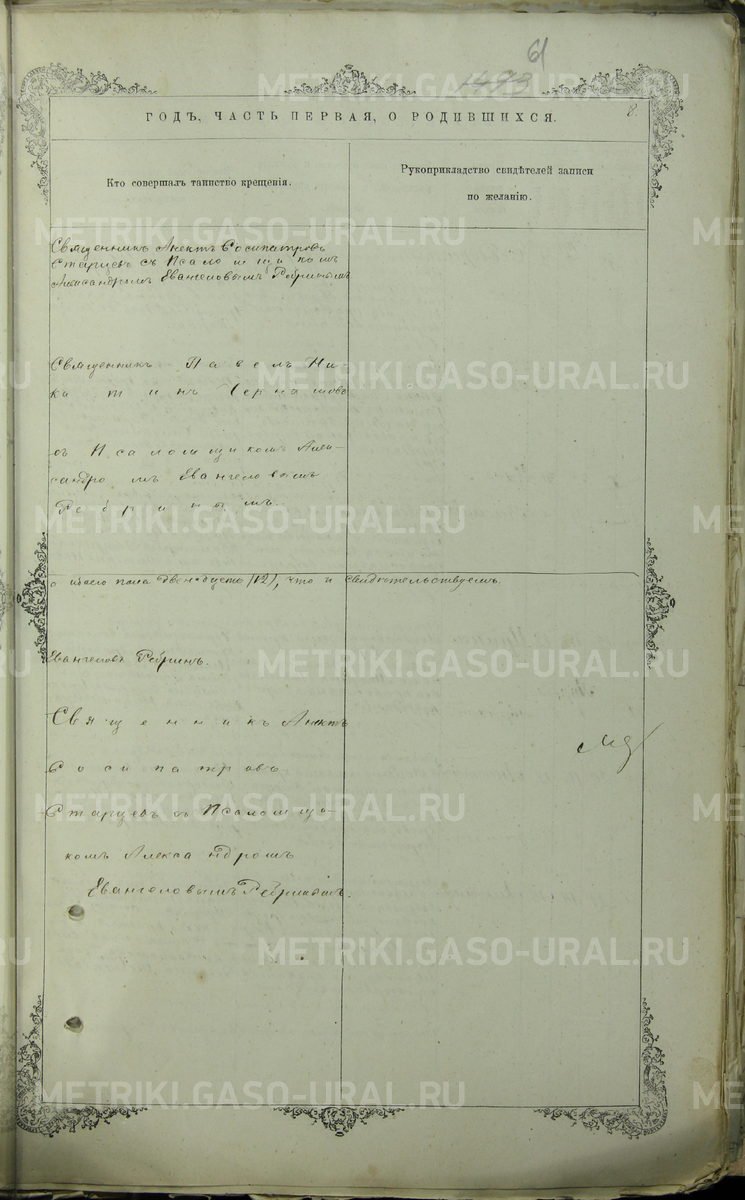 61
1493
8.
ГОДЪ, ЧАСТЬ ПЕРВАЯ, О РОДИВШИХСЯ.
Кто совершалъ таинство крещенія.
Рукоприкладство свидѣтелей записи
по желанію.
Священникъ Анектъ Росипатровъ
Старцевъ съ Псаломщикомъ
Александромъ Евангеловымъ Ребринымъ
Священникъ Павелъ Ни-
китинъ
съ Псаломщикомъ Алек-
сандромъ Евангеловымъ
Ребринымъ.
пола двенадцать /12/, что и свидѣтельствуемъ.
Евангеловъ Ребринъ.
Священникъ Анектъ
Росипатровъ
Старцевъ съ Псаломщи-
комъ Александромъ
Евангеловымъ Ребринымъ.
METRIKI.GASO-URAL.RU